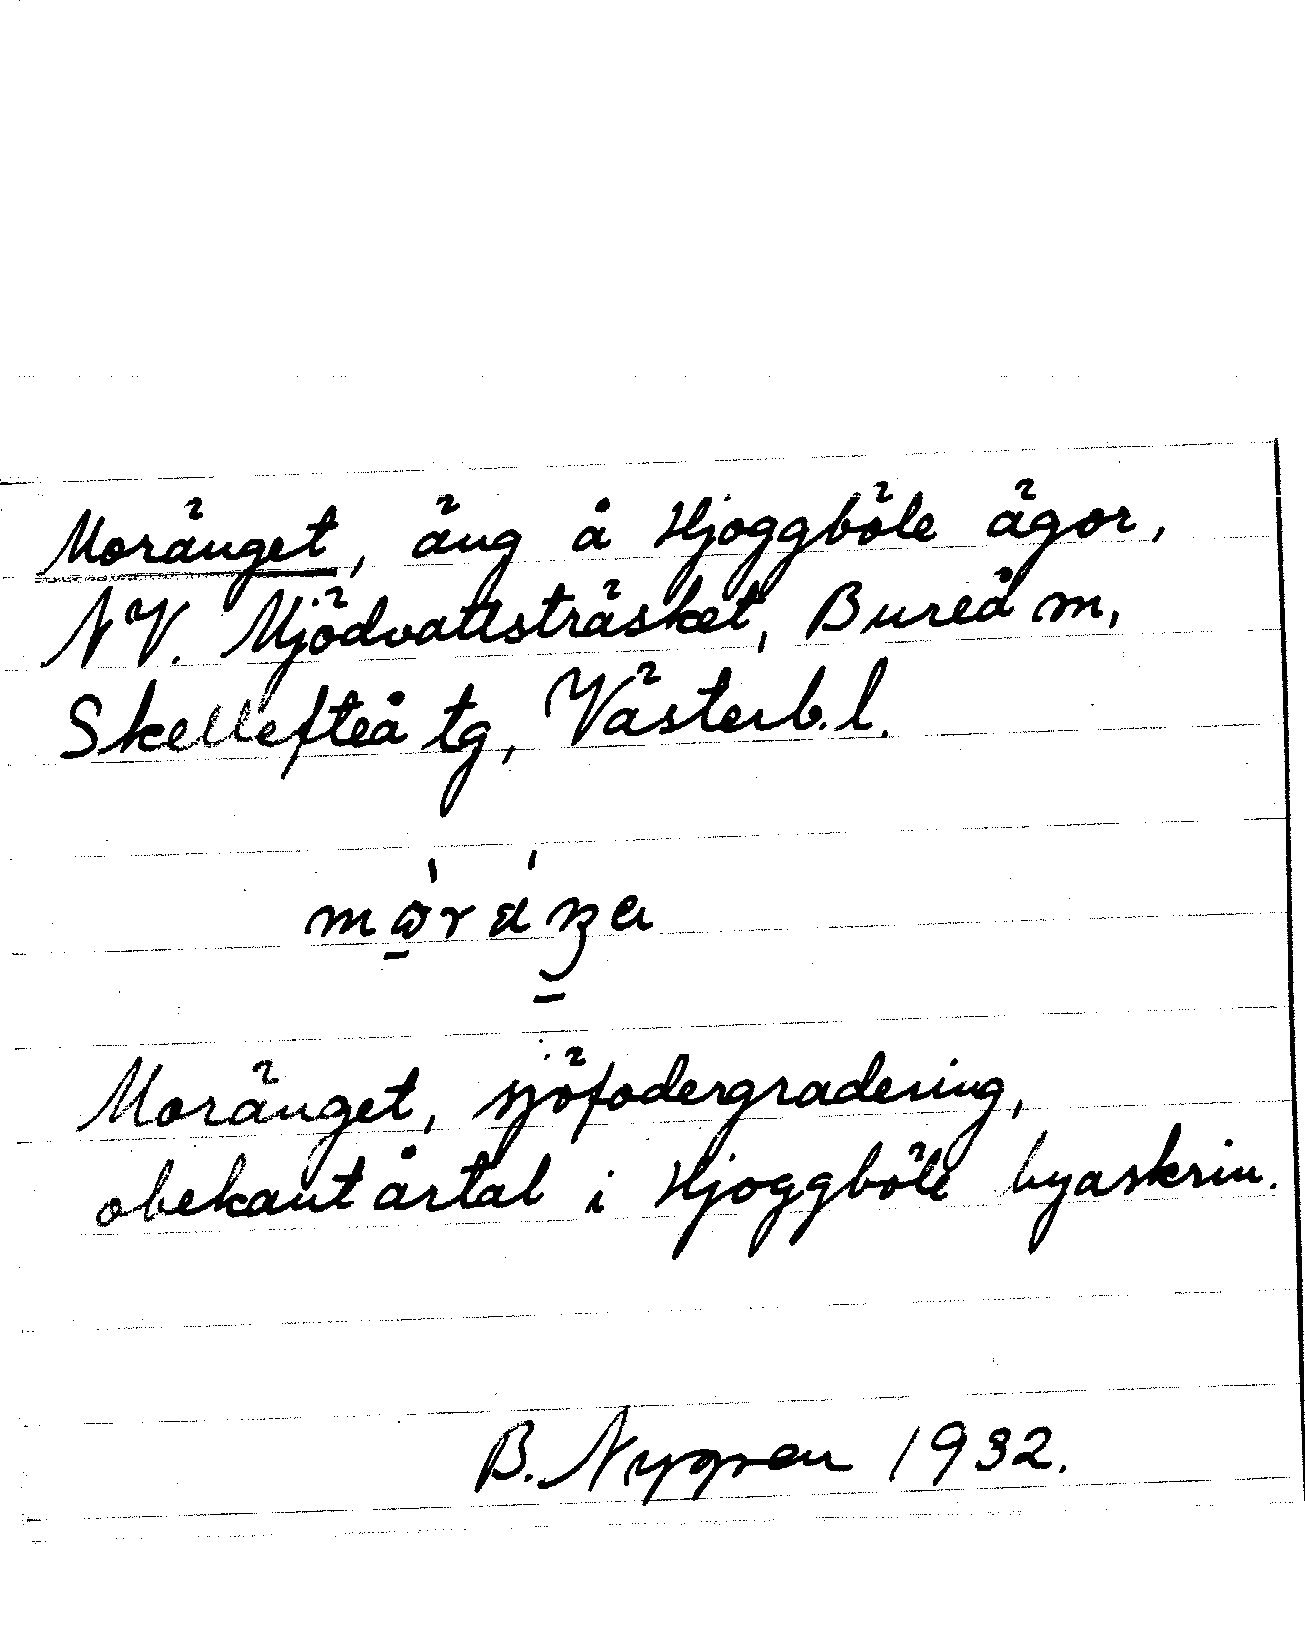 Moränget, äng å Hjoggböle ägor,
NV. Mjödvattsträsket, Bureå m,
Skellefteå tg, Västerb. l.
Moränget, sjöfodergradering,
obekant årtal i Hjoggböle byaskrin.
B. Nygren 1932.